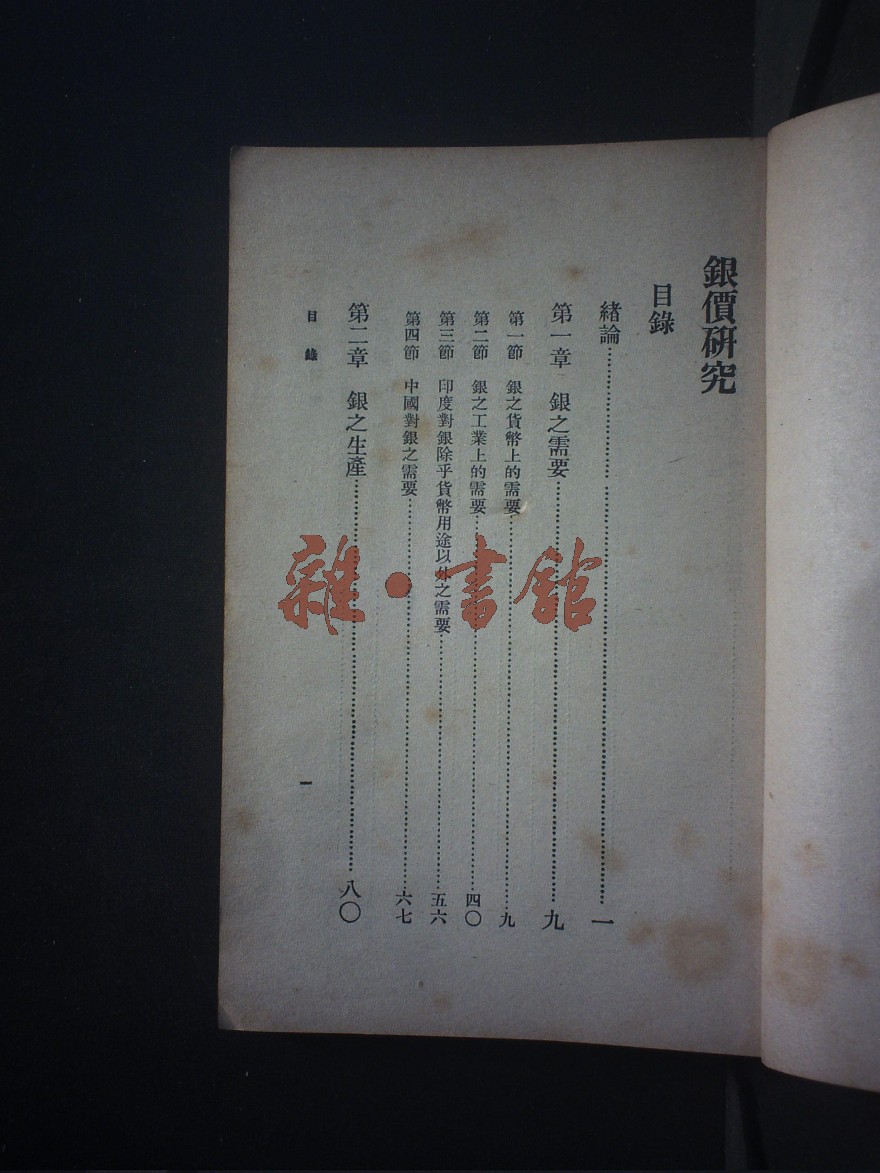 銀價研究
目錄
緒論……………………一
第一章　銀之需要……………………九
第一節　銀之貨幣上的需要……………………九
第二節　銀之工業上的需要……………………四〇
第三節　印度對銀除乎貨幣用途以外之需要……………………五六
第四節　中國對銀之需要……………………六七
第二章　銀之生產……………………八〇
目錄
一
雜·書館